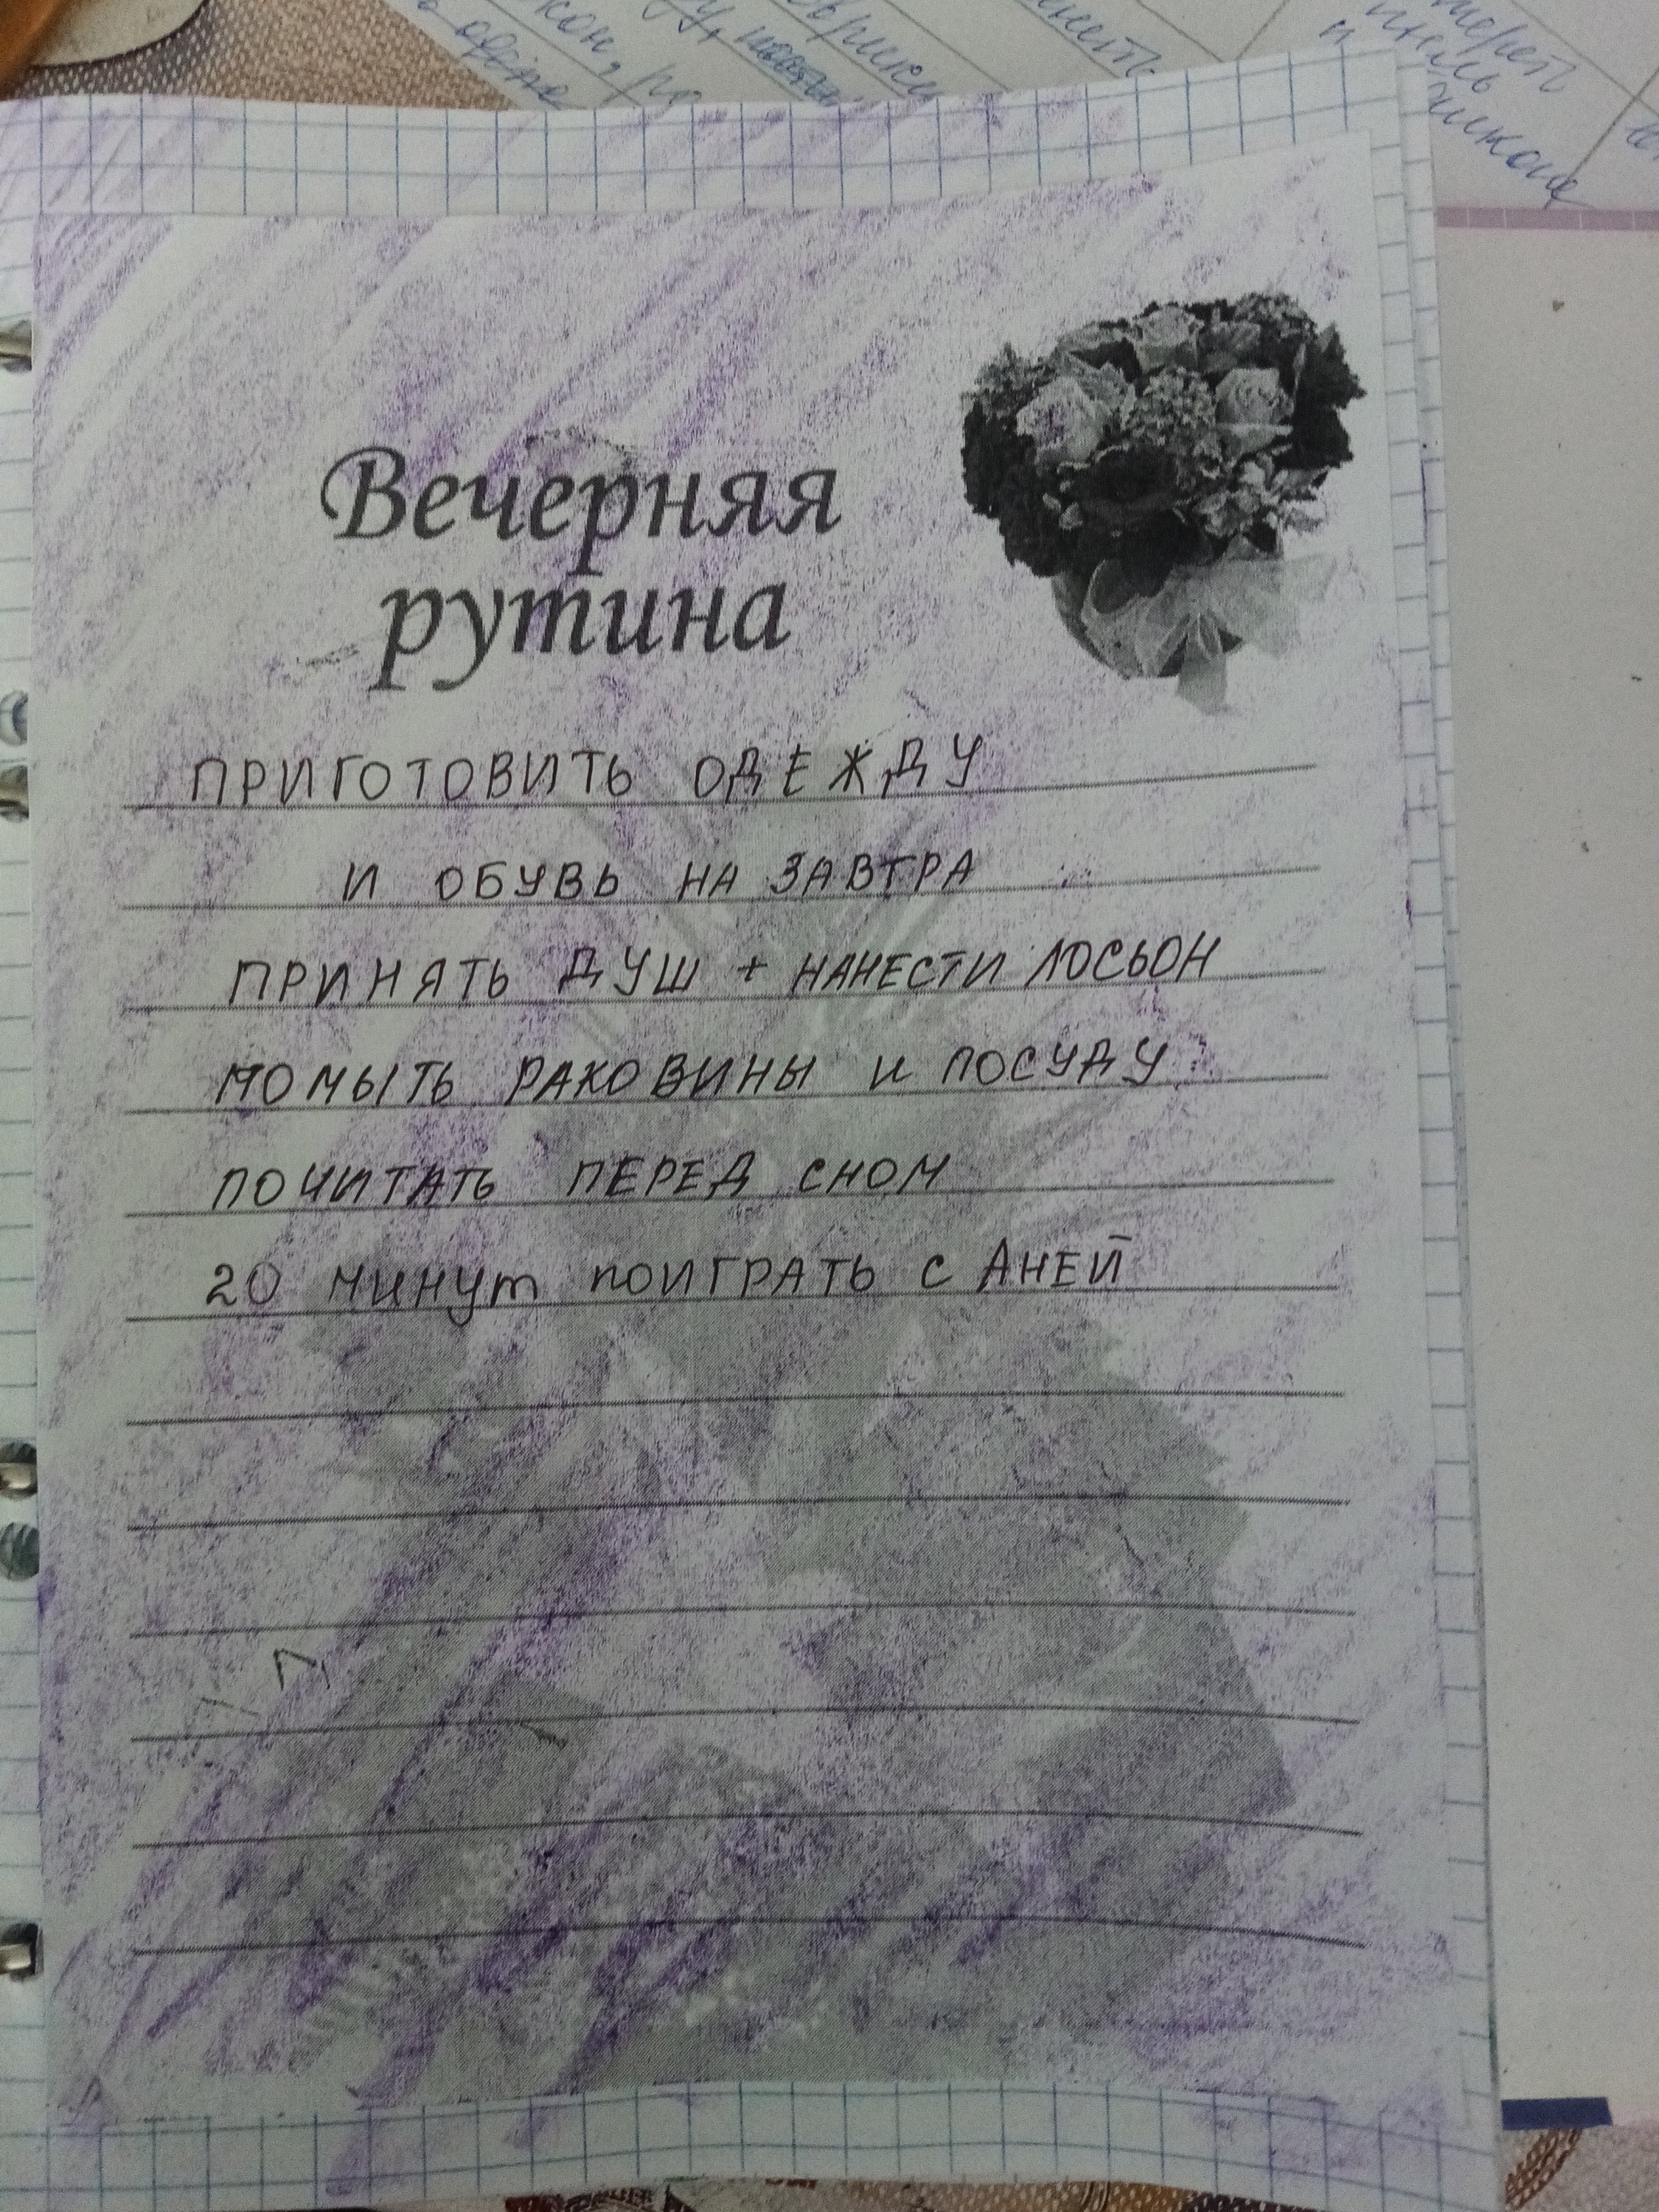 Вечерняя
рутина
ПРИГОТОВИТЬ ОДЕЖДУ
И ОБУВЬ НА ЗАВТРА
ПРИНЯТЬ ДУШ + НАНЕСТИ ЛОСЬОН
ПОМЫТЬ РАКОВИНЫ И ПОСУДУ
ПОЧИТАТЬ ПЕРЕД СНОМ
20 МИНУТ ПОИГРАТЬ С АНЕЙ